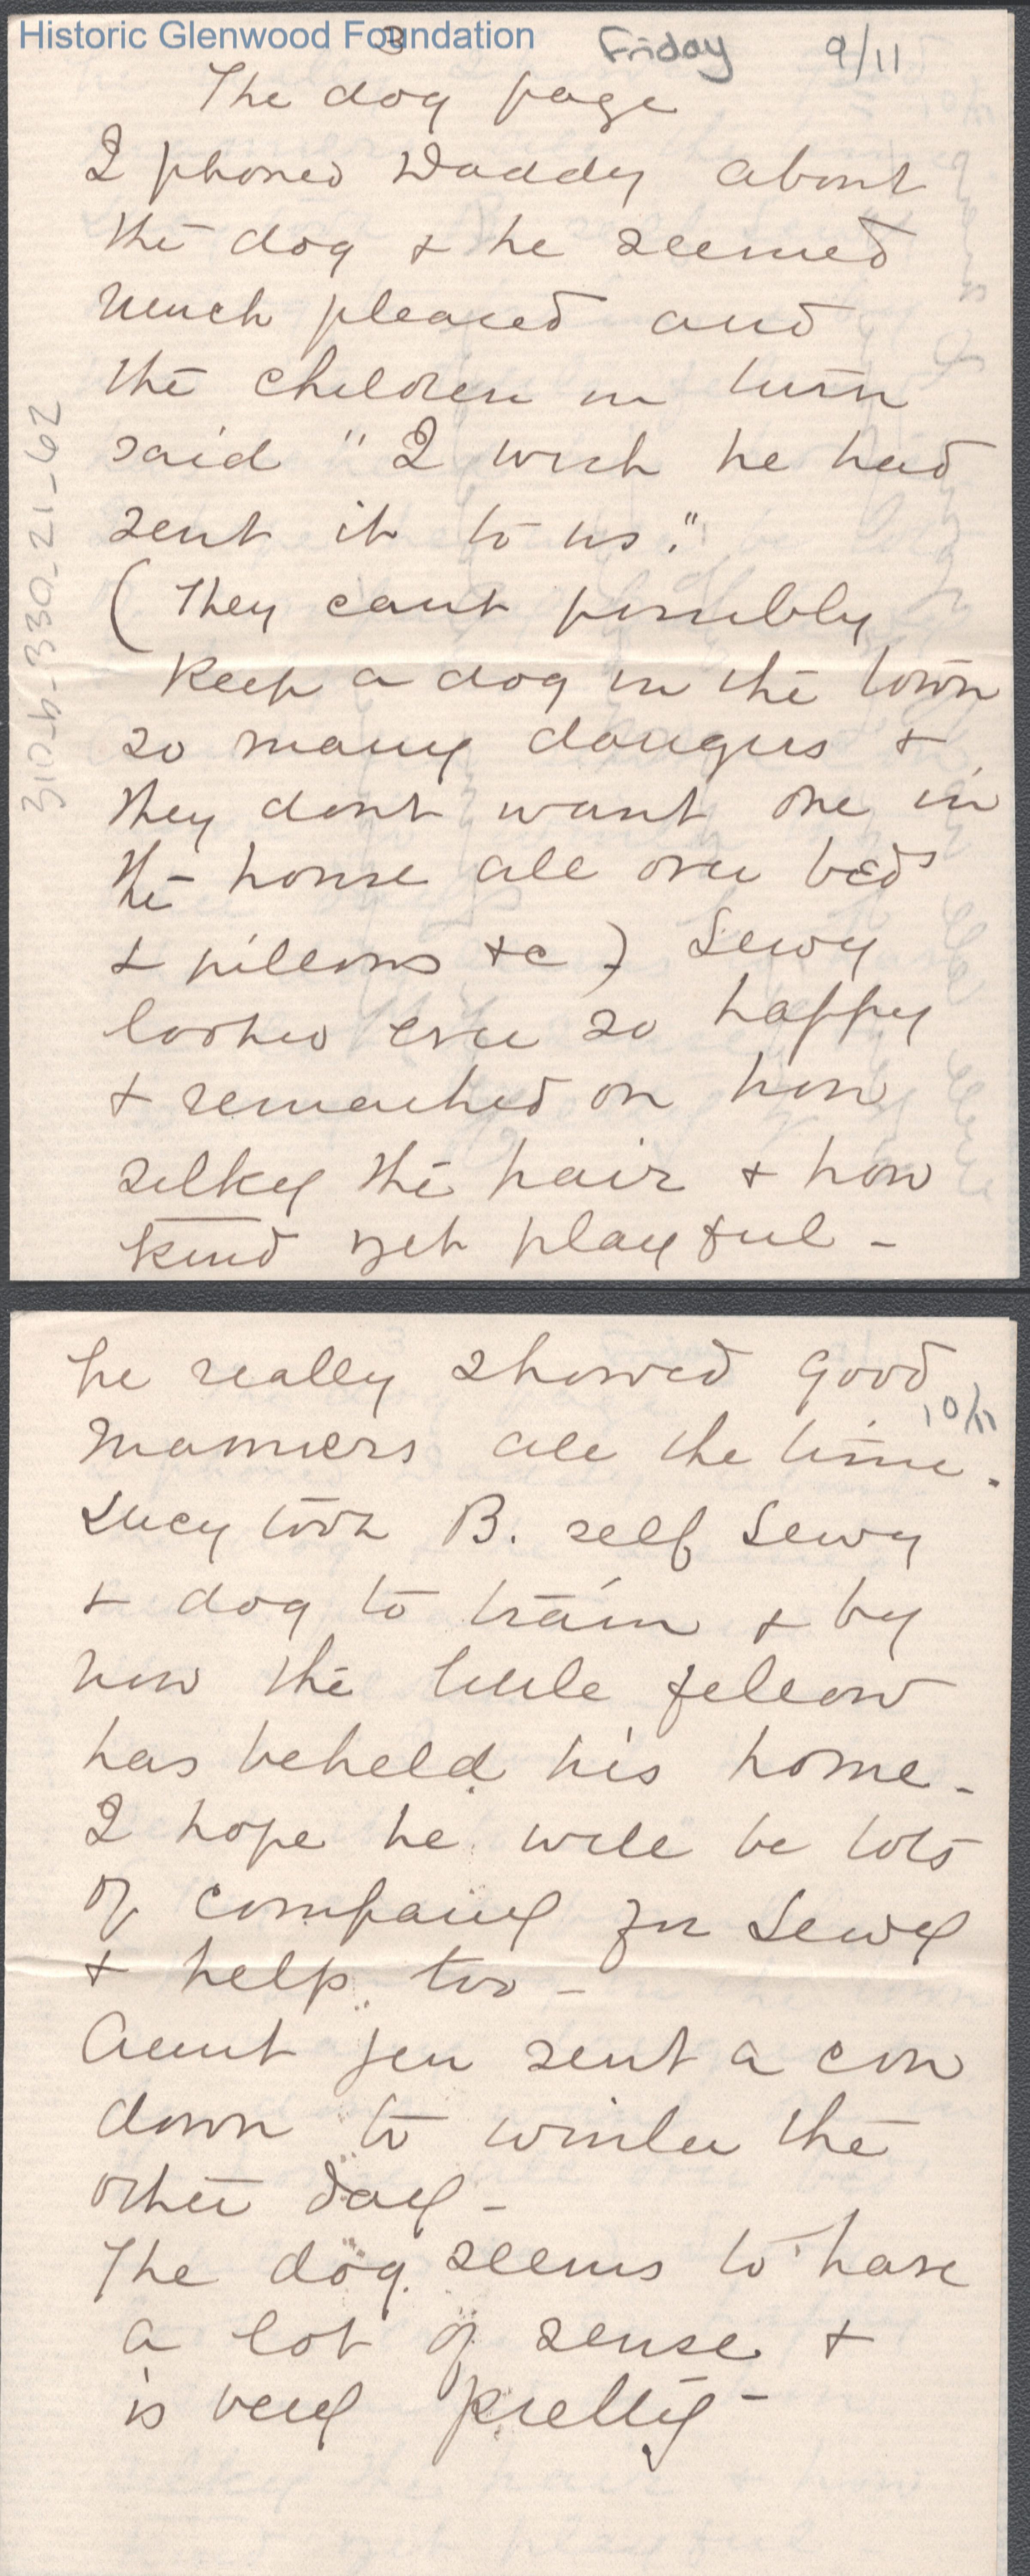 Historic Glenwood Foundation
3
Friday 9/11
The dog page
I phoned Daddy about
the dog & he seemed
much pleased and
the children in turn
said "I wish he had
sent it to us."
(They cant possibly
keep a dog in the town
so many dangers &
they dont want one in
the house all over beds
& pillows &c) Lewy
looked ever so happy
& remarked on how
silky the hair & how
kind yet playful -
310-b-330-21-62
he really showed good
10/11
manners all the time.
Lucy took B. self Lewy
& dog to train & by
now the little fellow
has beheld his home -
I hope he will be lots
of company for Lewy
& help too -
Aunt Jen sent a cow
down to winter the
other day -
The dog seems to have
a lot of sense &
is very pretty -